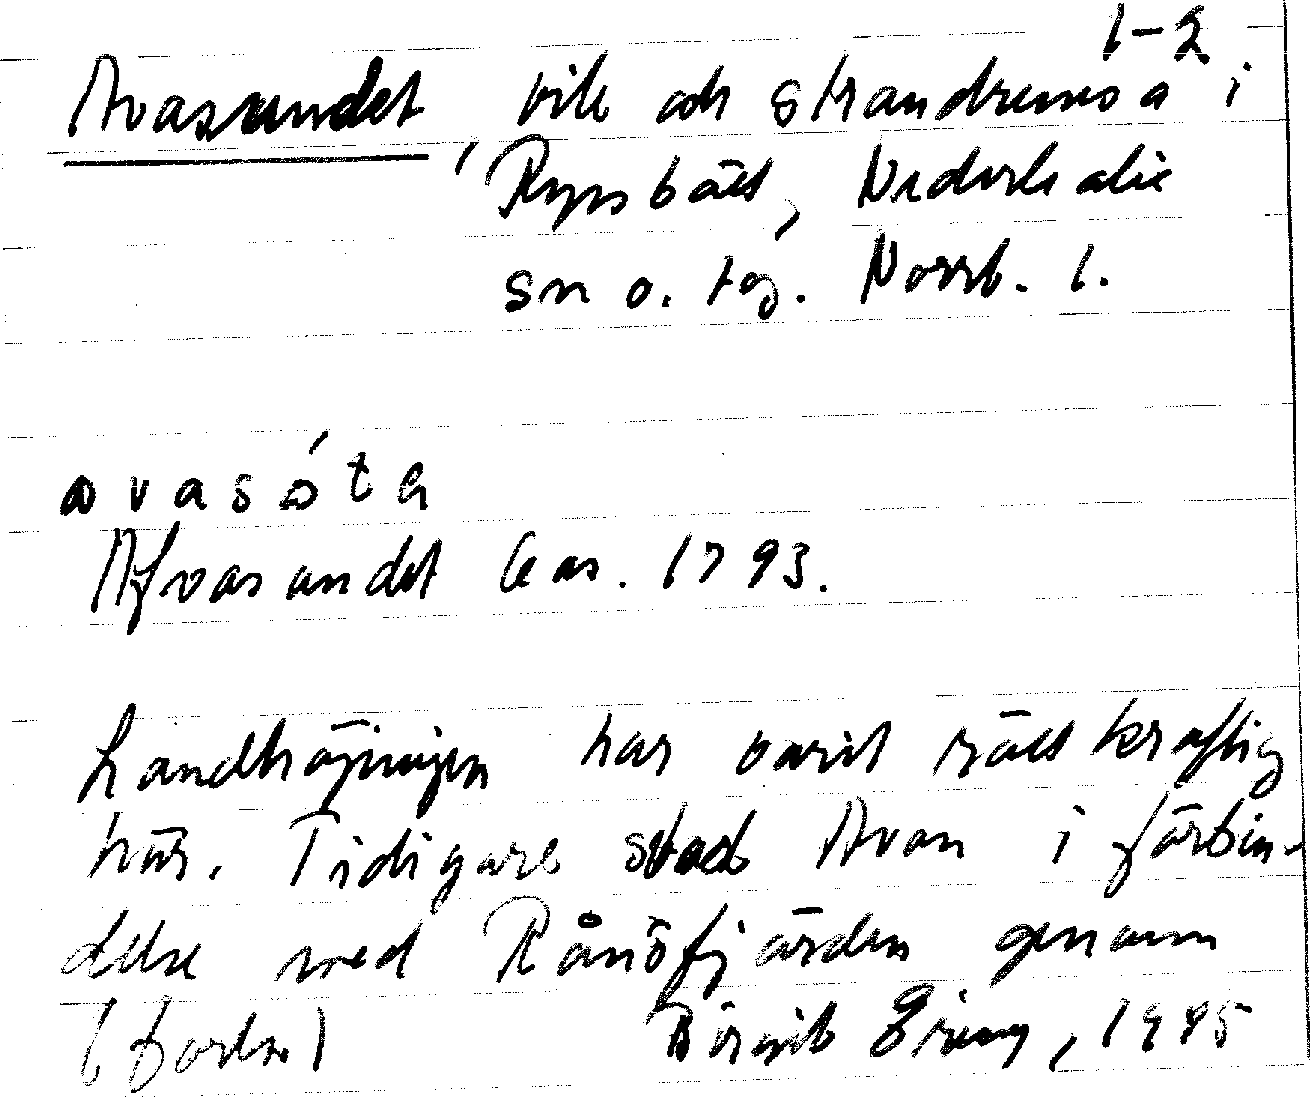 1-2
Avasundet, vik och strandremsa i
Rysbält, Nederkalix
sn o. tg. Norrb. l.
avasóta
Afvasundet Geas. 1793.
Landhöjningen har varit rätt kraftig
här. Tidigare stod Avan i förbin-
delse med Rånöfjärden genom
(forts.) Birgit Ering, 1995